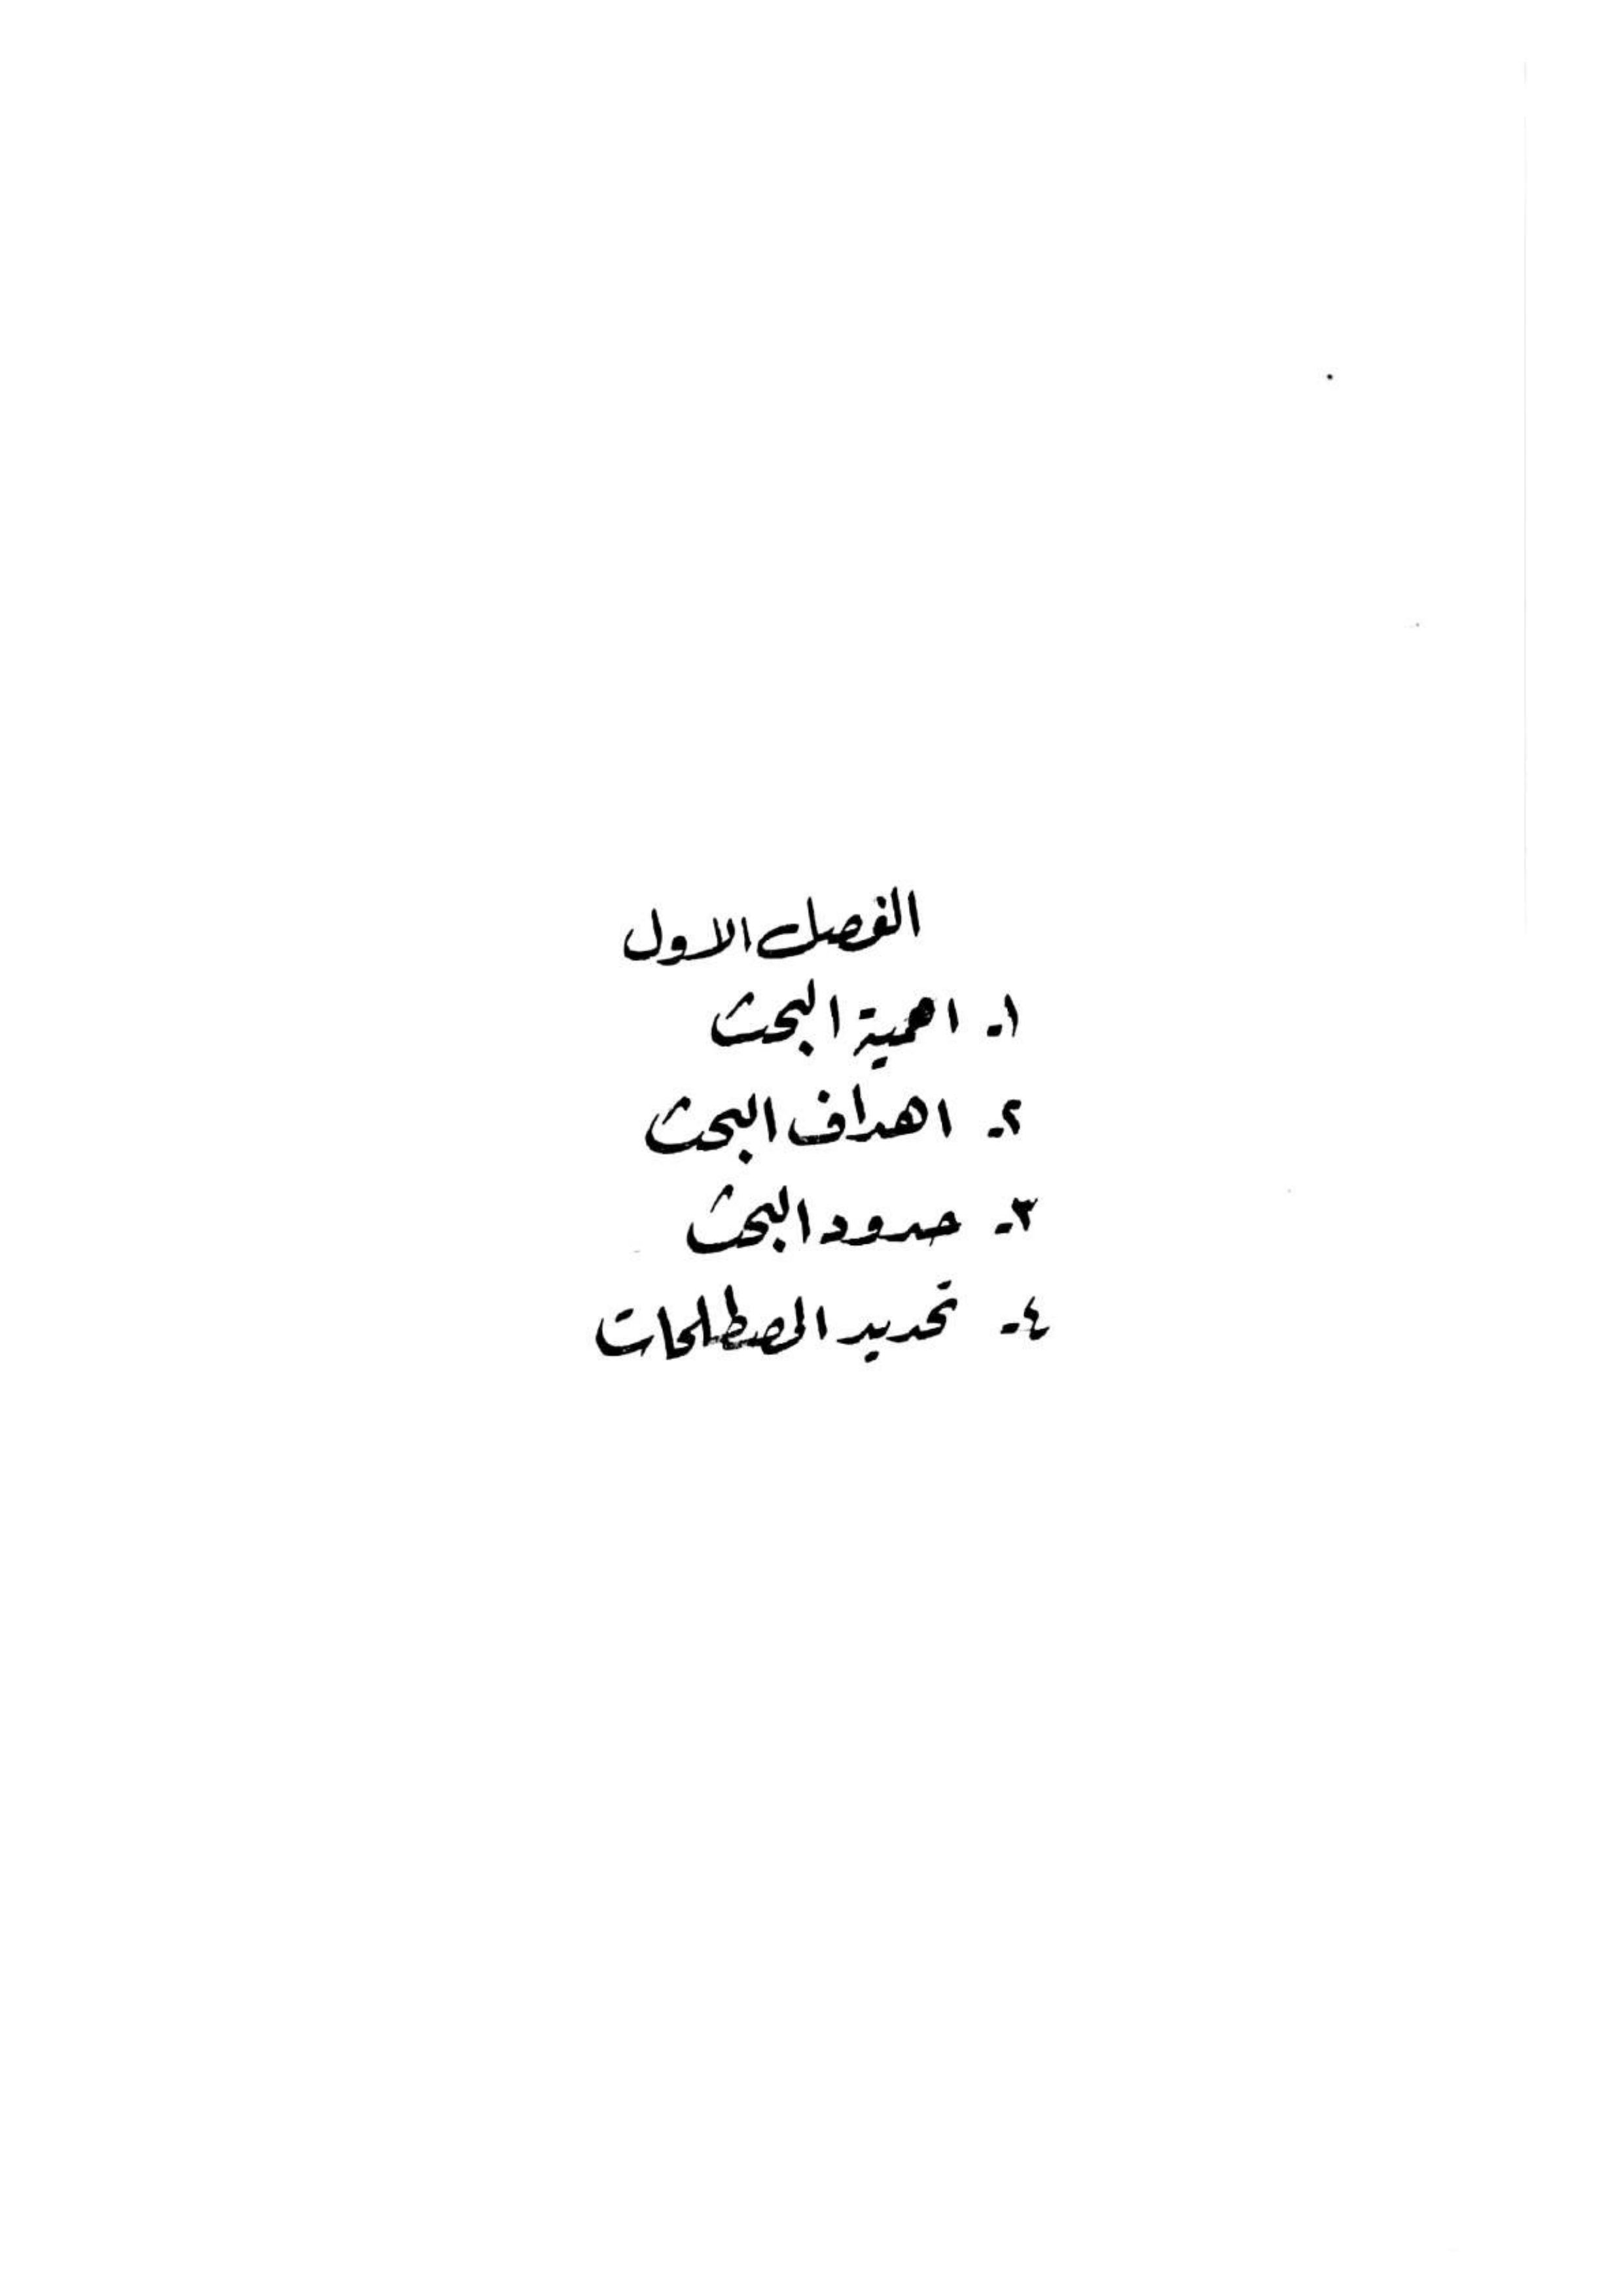 الفصل الاول
١- اهمية البحث
٢- اهداف البحث
٣- حدود البحث
٤- تحديد المصطلحات